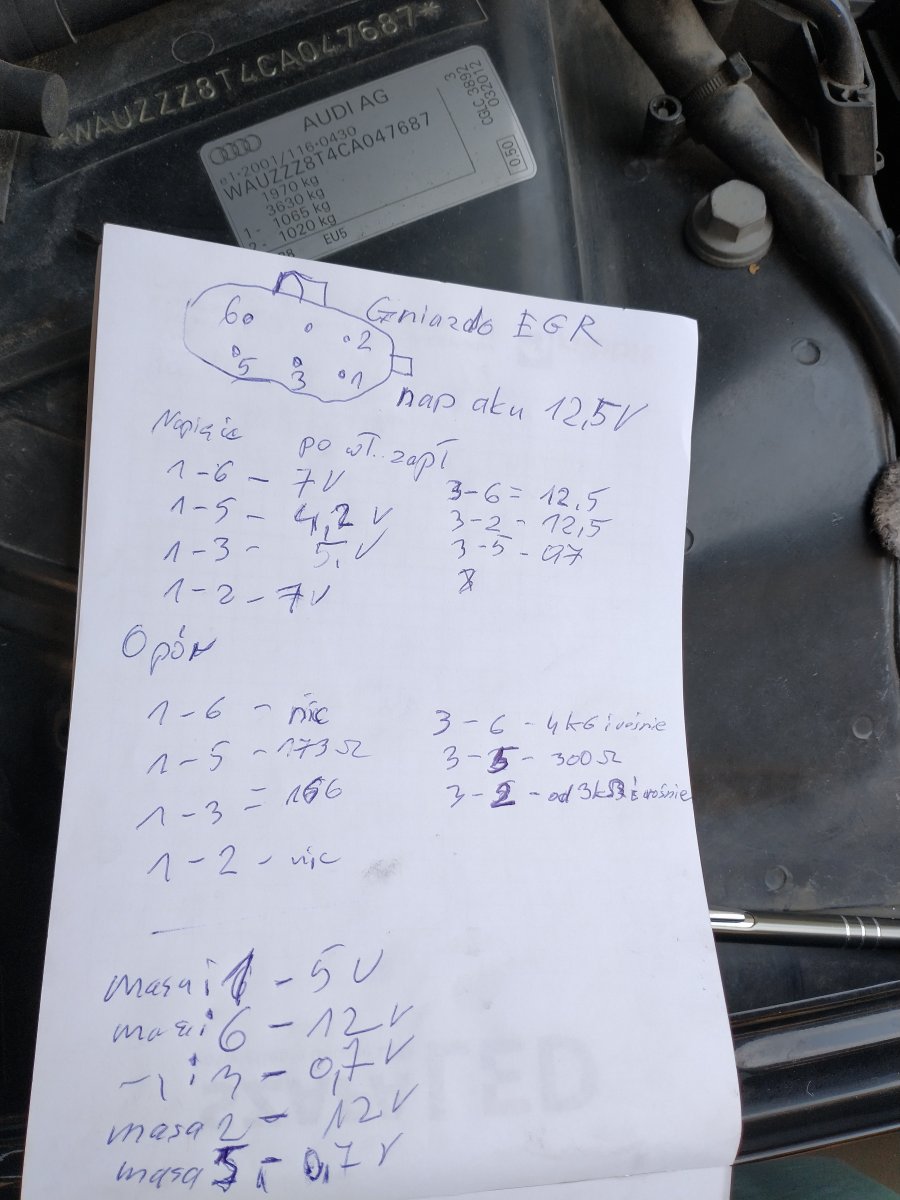 *WAUZZZ8T4CA047687*
AUDI AG
e1*2001/116*0430
WAUZZZ8T4CA047687
1970 kg
3630 kg
1- 1065 kg
2- 1020 kg
EU5
3
CGLC 3892
032012
050
Gniazdo EGR
6
2
5
3
1
nap aku 12,5V
Napięcie po wł. zapł
1-6 - 7V
1-5 - 4,2 V
1-3 - 5, V
1-2 - 7V
3-6 = 12,5
3-2 - 12,5
3-5 - 0,7
Opór
1-6 - nic
1-5 - 173 Ω
1-3 = 166
1-2 - nic
3-6 - 4k6 i rośnie
3-5 - 300 Ω
3-2 - od 3kΩ i rośnie
masa i 1 - 5 V
masa i 6 - 12 V
-„ i 3 - 0,7 V
masa 2 - 12 V
masa 5 - 0,7 V